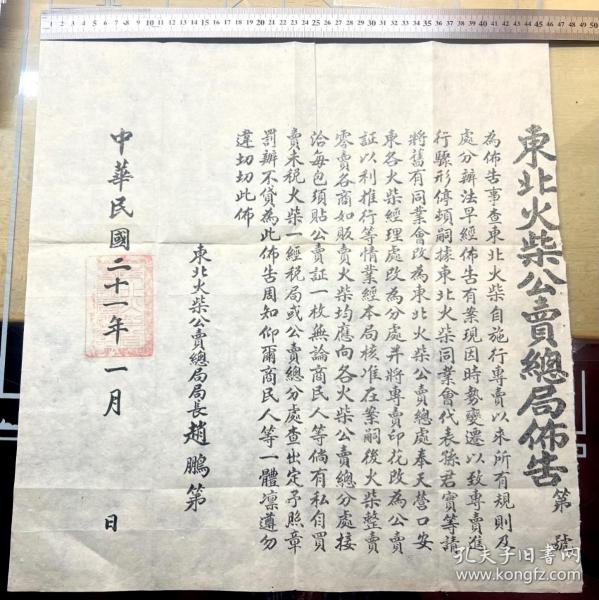 東北火柴公賣總局佈告 第 號
為佈告事查東北火柴自施行專賣以來所有規則及
處分辦法早經佈告有案現因時勢變遷以致專賣進
行驟形停頓嗣據東北火柴同業會代表孫君實等請
將舊有同業會改為東北火柴公賣總處奉天營口安
東各火柴經理處改為分處并將專賣印花改為公賣
証以利推行等情業經本局核准在案嗣後火柴整賣
零賣各商如販賣火柴均應向各火柴公賣總分處接
洽每包須貼公賣証一枚無論商民人等倘有私自買
賣未税火柴一經税局或公賣總分處查出定予照章
罰辦不貸為此佈告周知仰爾商民人等一體凜遵勿
違切切此佈
東北火柴公賣總局局長趙鵬第
中華民國二十一年一月 日
孔夫子旧书网
www.kongfz.com